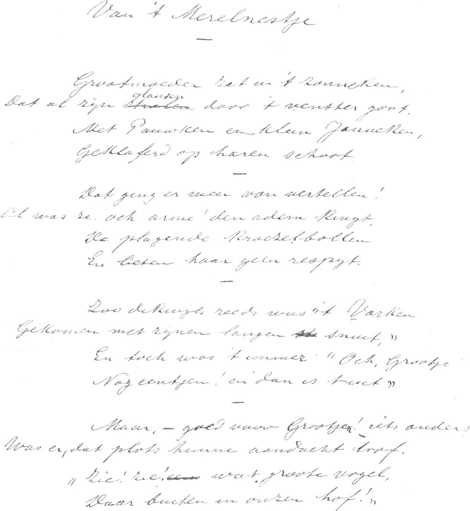 Van 't Merelnestje
Grootmoeder zat in 't zonneken,
Dat al zijn stralen glansen door 't venster goot,
Met Pauwken en klein Janneken,
Geklaferd op haren schoot.
Dat ging er weer van vertellen!
Al was ze och arme! den adem kwyt,
De plagende kroezelbollen
En lieten haar geen respyt.
Zoo dikwyls reeds was "t Varken
Gekomen met zynen langen snuit,"
En toch was 't immer "Och, Grootje
Nog eentjen! en dan is 't uit"
Maar, – goed voor Grootje! – iets anders
Was er, dat plots hunne aandacht trof.
"Zie! zie! wat groote vogel,
Daar buiten in onzen hof!"